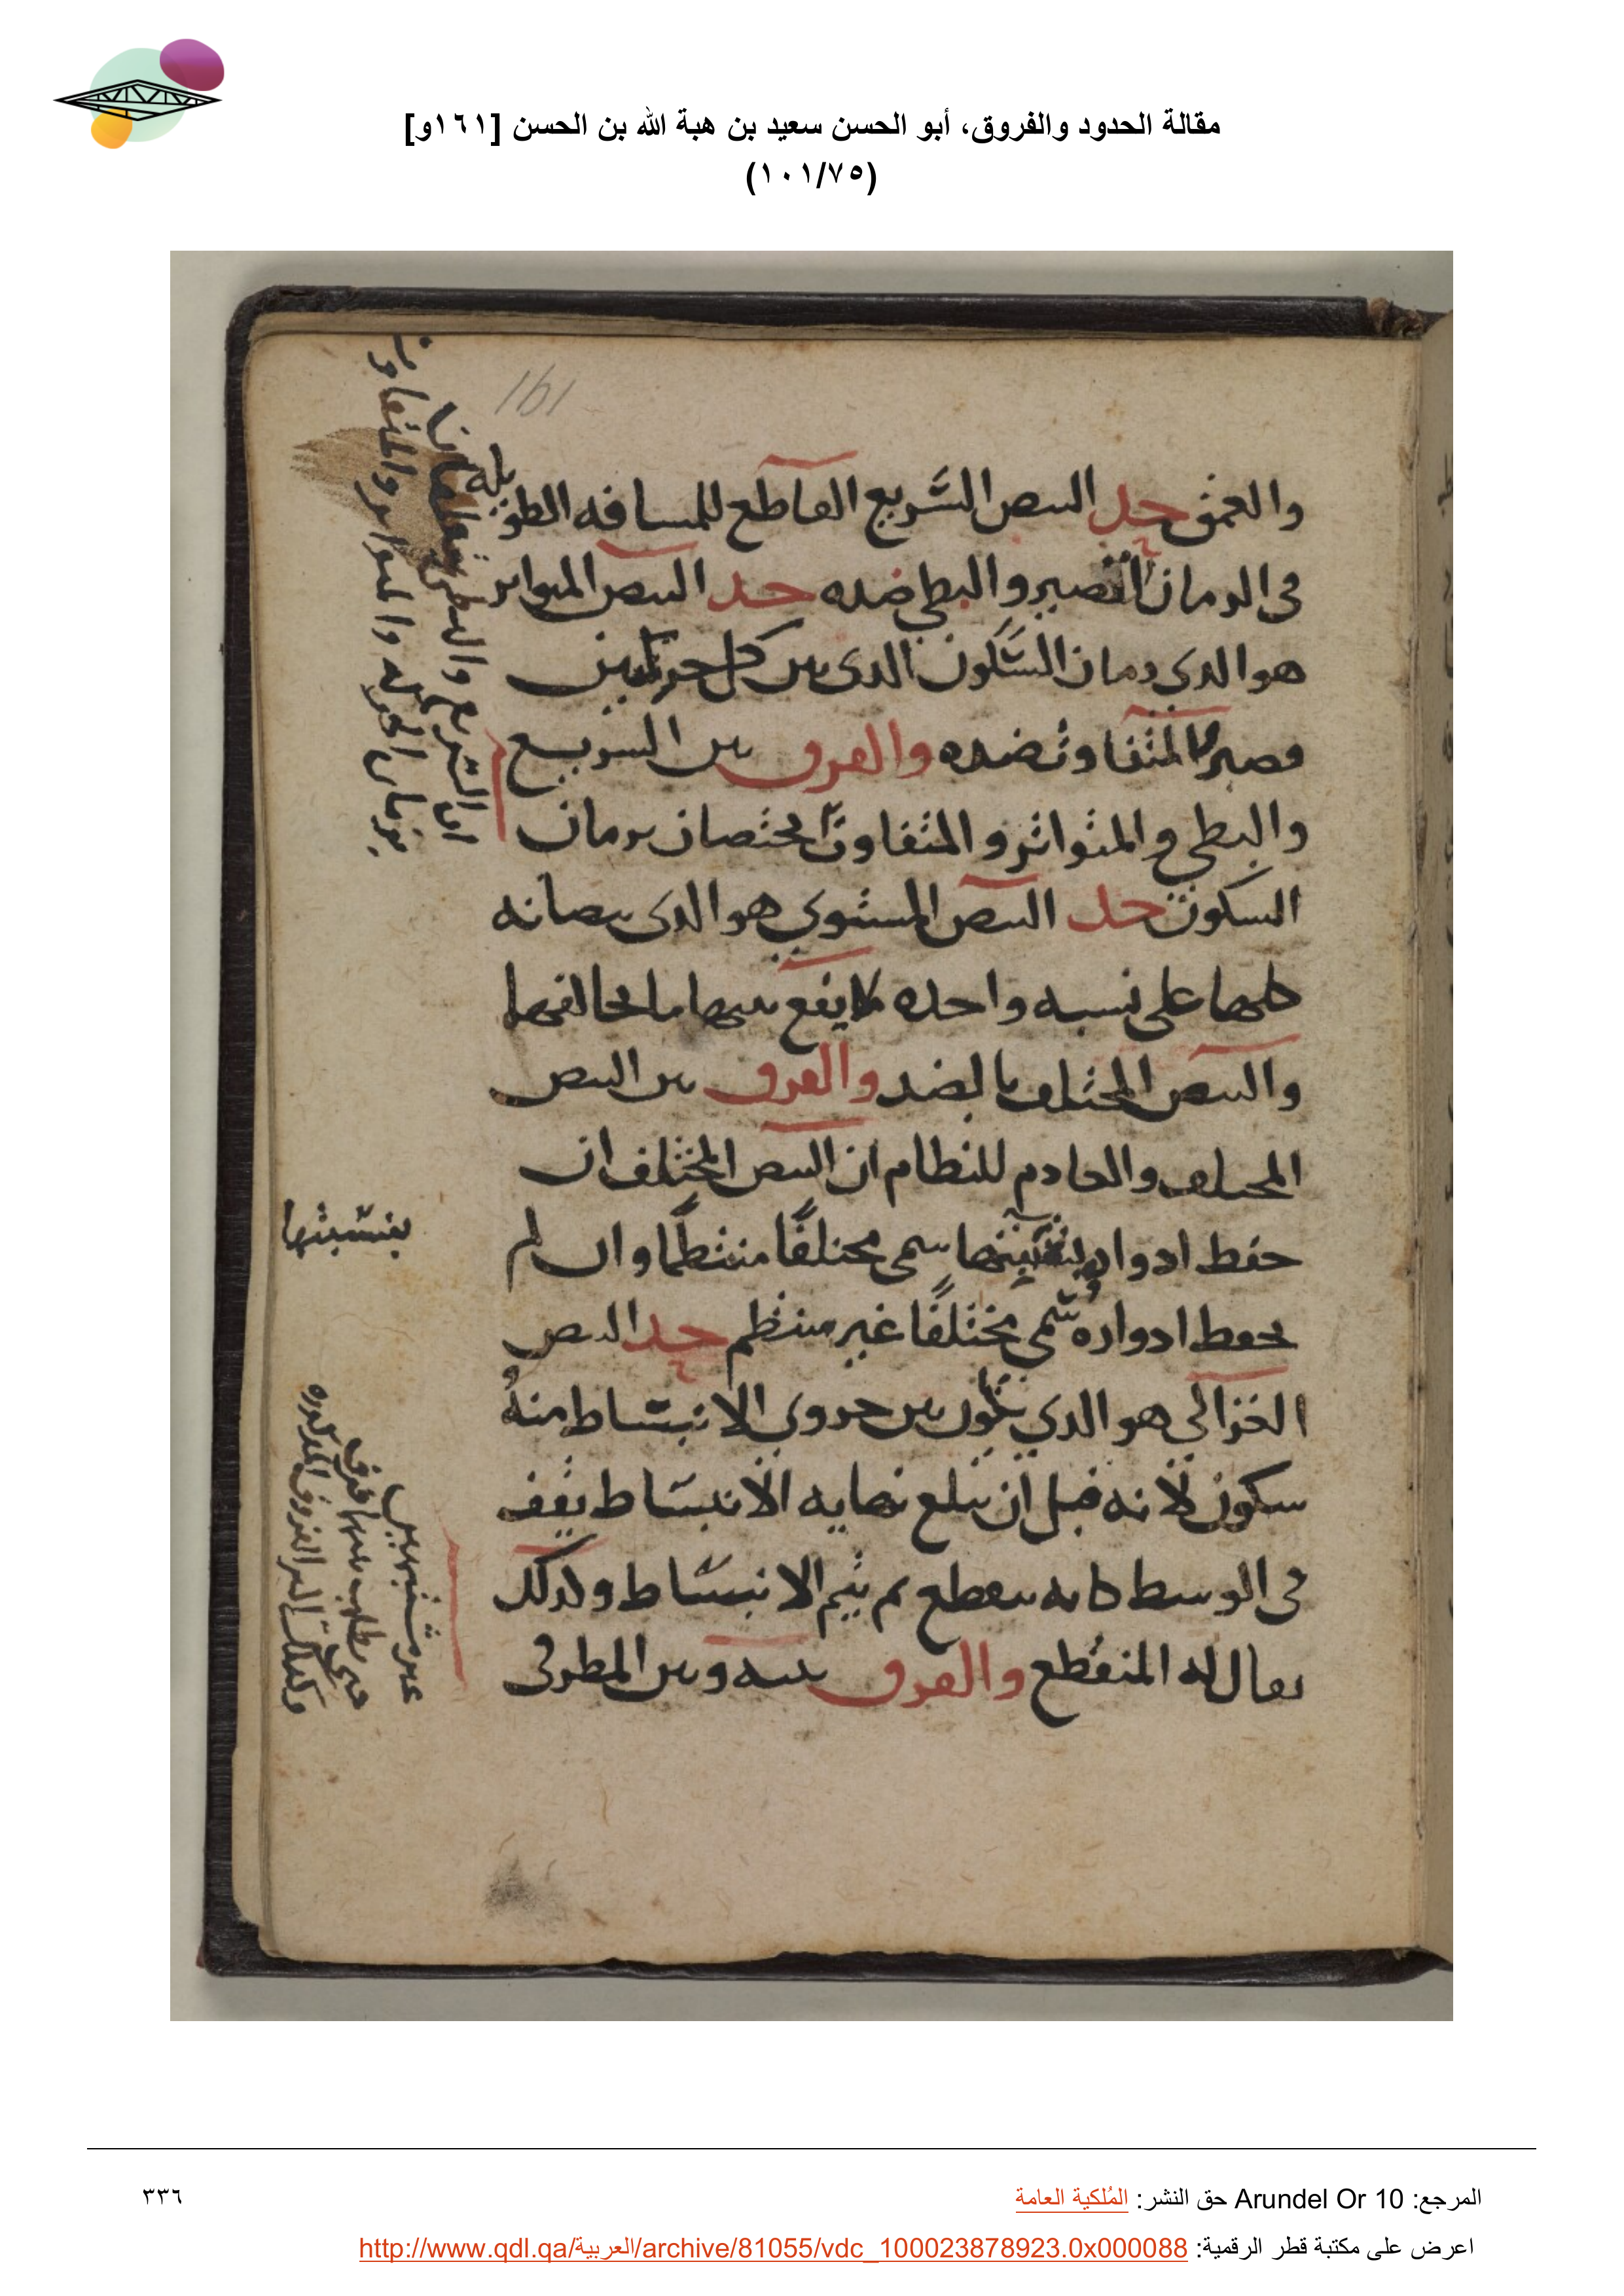 مقالة الحدود والفروق، أبو الحسن سعيد بن هبة الله بن الحسن [١٦١و]
(١٠١/٧٥)
161
والعمق حد النبض السّريع القاطع للمسافه الطويله
فى الزمان القصير والبطى ضده حد النبض المتواتر
هو الدى زمان السّكون الدى بين كل حركتين
قصيرا المتفاوت ضده والفرق بين السريع
والبطي والمتواتر والمتفاوت يختصان بزمان
السكون حد النبض المستوي هو الدى نبضاته
كلها على نسبه واحده لا يقع بينها ما يخالفها
والنبض المختلف بالضد والفرق بين النبض
المختلف والعادم للنظام ان النبض المختلف ان
حفظ ادوار سمى مختلفًا منتظمًا وان لم
يحفظ ادواره سُمّي مختلفًا غير منتظم حد النبض
الغزالي هو الدي يكون بين جزوي الانبسَاط منهُ
سكون لانه قبل ان يبلغ نهايه الانبسَاط يقف
فى الوسط كانه ينقطع ثم يتم الانبسَاط ولدلك
يقال له المنقطع والفرق بينه وبين المطرقى
بنسّبتها
المرجع: Arundel Or 10 حق النشر: المُلكية العامة
٣٣٦
اعرض على مكتبة قطر الرقمية: http://www.qdl.qa/العربية/archive/81055/vdc_100023878923.0x000088